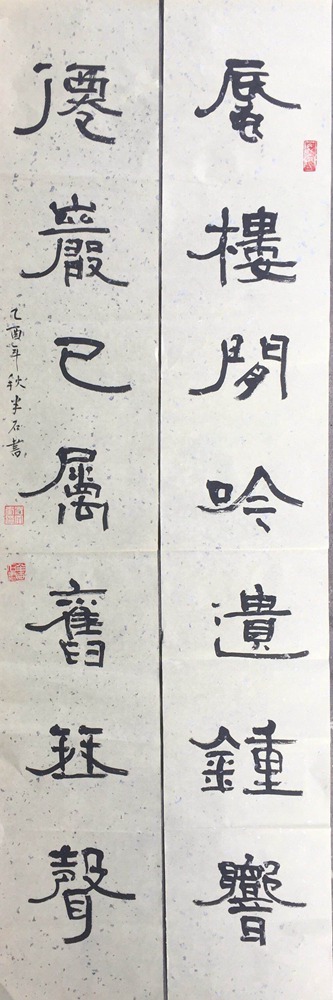 蜃樓閒吟遺鍾響
僊巖已屬舊聲
乙酉年秋半石書